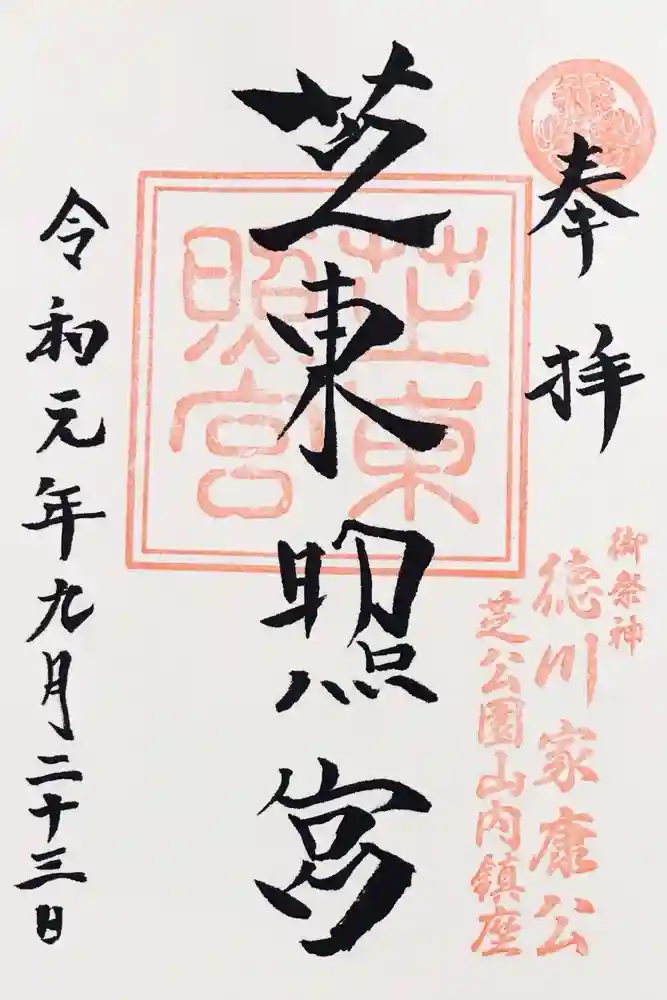 奉拝
御祭神
徳川家康公
芝公園山内鎮座
芝東照宮
芝東
照宮
令和元年九月二十三日